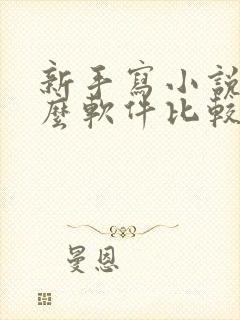 新手寫小說
麼軟件比較
曼恩